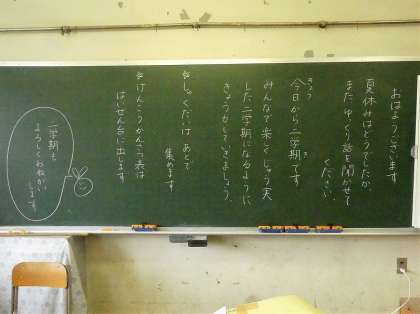 おはようございます
夏休みはどうでしたか。
また ゆっくり話を聞かせて
ください。
今日から二学期です
きょう
き
みんなで楽しくじゅう実
した二学期になるように
きょう力していきましょう。
☆しゅくだいは あとで
集めます
☆けんこうかんさつ表は
はいぜん台に出します
二学期も
よろしくおねがい
します。